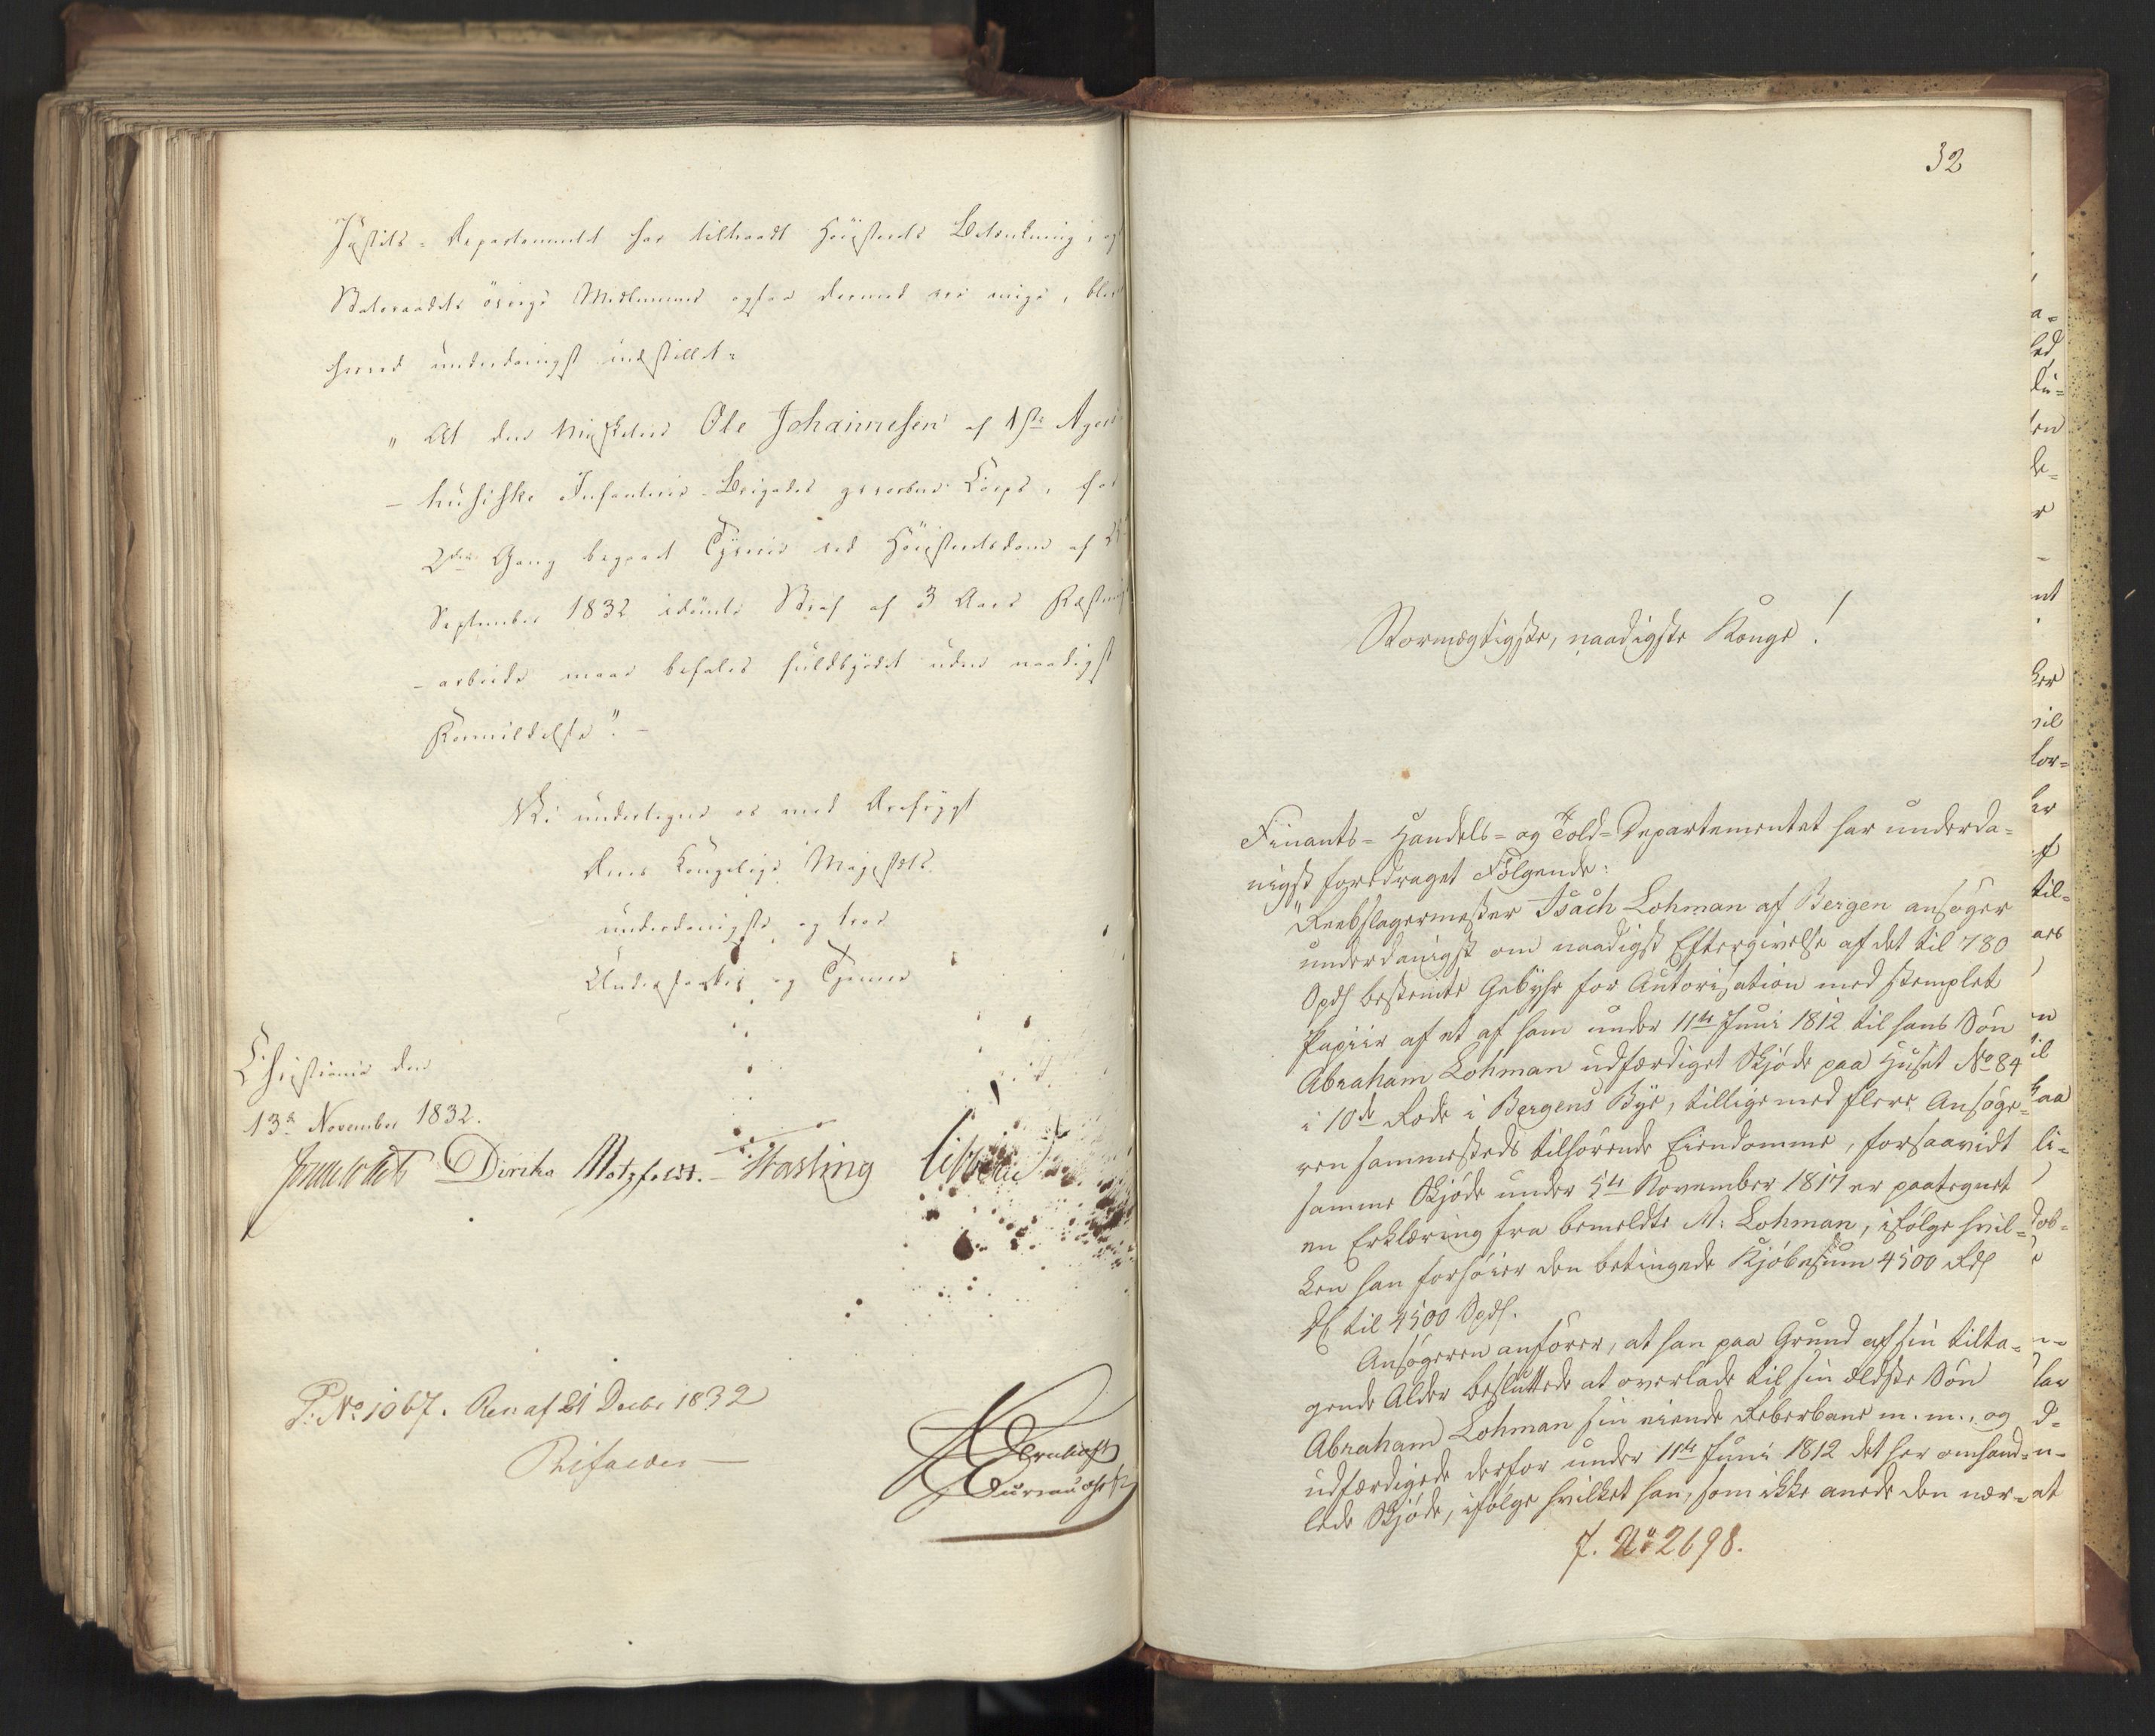 Justits-Departementet har tiltraadt Höiesterets Betænkning, og
Statsraadets övrige Medlemmer ogsaa dermed ere enige, blev
herved underdanigst indstillet:
"At den Musketeer Ole Johannesen af 1ste Agers-
-huusiske Infanterie-Brigades gevorbne Corps, for
2den Gang begaaet Tyverie ved Höiesteretsdom af
September 1832 idömte Straf af 3 Aars Fæstnings
-arbeide maae befales fuldbyrdet uden naadigst
Formildelse".-
Vi undertegne os med Ærefrygt
Deres Kongelige Majestæts
underdanigste og troe
Undersaatter og Tjenere
Christiania den
13de November 1832.
Diricks Motzfeldt. Fasting
P: No 1067. Res: af 21 Decbr 1832
32
Stormægtigste, naadigste Konge!
Finants- Handels- og Told-Departementet har underda-
nigst foredraget Fölgende:
"Reebslagermester Isach Lohman af Bergen ansöger
underdanigst om naadigst Eftergivelse af det til 780
Spd bestemte Gebyhr for Autorisation med stemplet
Papiir af et af ham under 11te Juni 1812 til hans Sön
Abraham Lohman udfærdiget Skjöde paa Huset No 84
i 10de Rode i Bergens Bye, tilligemed flere Ansöge-
ren sammesteds tilhörende Eiendomme, forsaavidt
samme Skjöde under 5te November 1817 er paategnet
en Erklæring fra bemeldte A: Lohman, ifölge hvil-
ken han forhöier den betingede Kjöbesum 4500 Rd
DC til 4500 Spd.
Ansögeren anförer, at han paa Grund af sin tilta-
gende Alder besluttede at overlade til sin ældste Sön
Abraham Lohman sin eiende Reberbane m. m., og
udfærdigede derfor under 11te Juni 1812 det her omhand-
lede Skjöde, ifölge hvilket han, som ikke anede den nær-
J. No 2698.